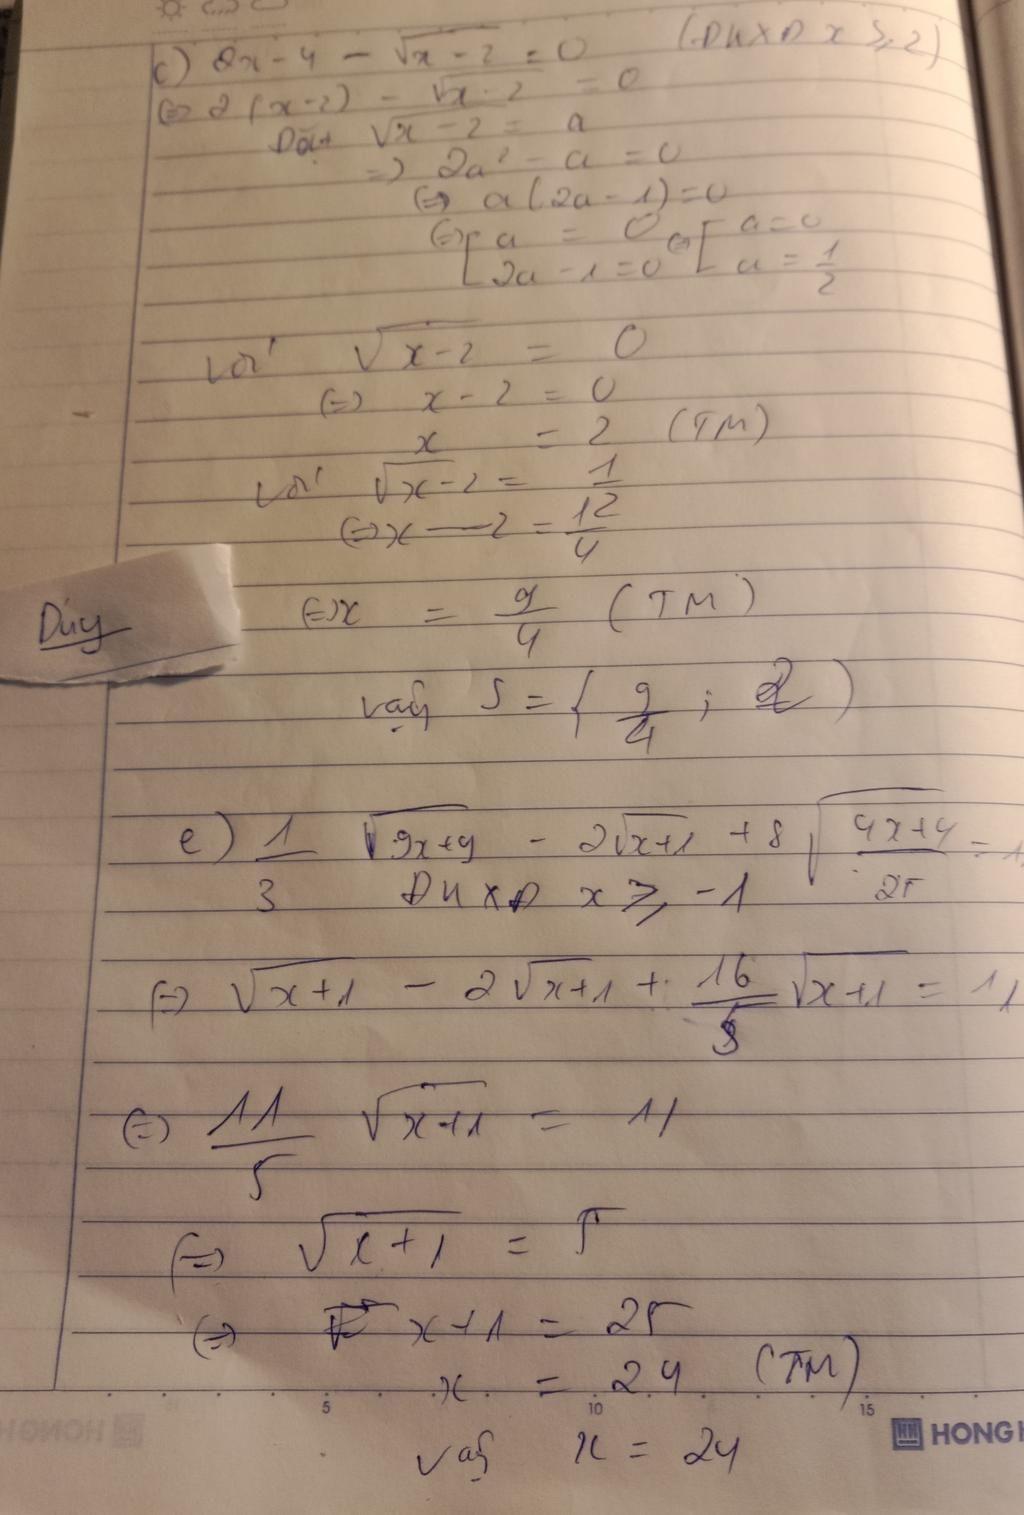 c) 2x - 4 - √(x - 2) = 0 (ĐKXĐ x ≥ 2)
(=) 2(x-2) - √(x - 2) = 0
Đặt √(x - 2) = a
=) 2a² - a = 0
(=) a(2a - 1) = 0
(=) [ a = 0 (=) [ a = 0
2a - 1 = 0 a = 1/2
với √(x-2) = 0
(=) x - 2 = 0
x = 2 (TM)
với √(x-2) = 1/2
(=) x - 2 = 1²/4
(=) x = 9/4 (TM)
Dúy
vậy S = { 9/4 ; 2 )
e) 1/3 √(9x+9) - 2√(x+1) + 8√((4x+4)/25) = 1
ĐKXĐ x ≥ -1
(=) √(x+1) - 2√(x+1) + 16/5 √(x+1) = 11
(=) 11/5 √(x+1) = 11
(=) √(x+1) = 5
(=) x+1 = 25
x = 24 (TM)
5 10 15
HONG H
vậy x = 24